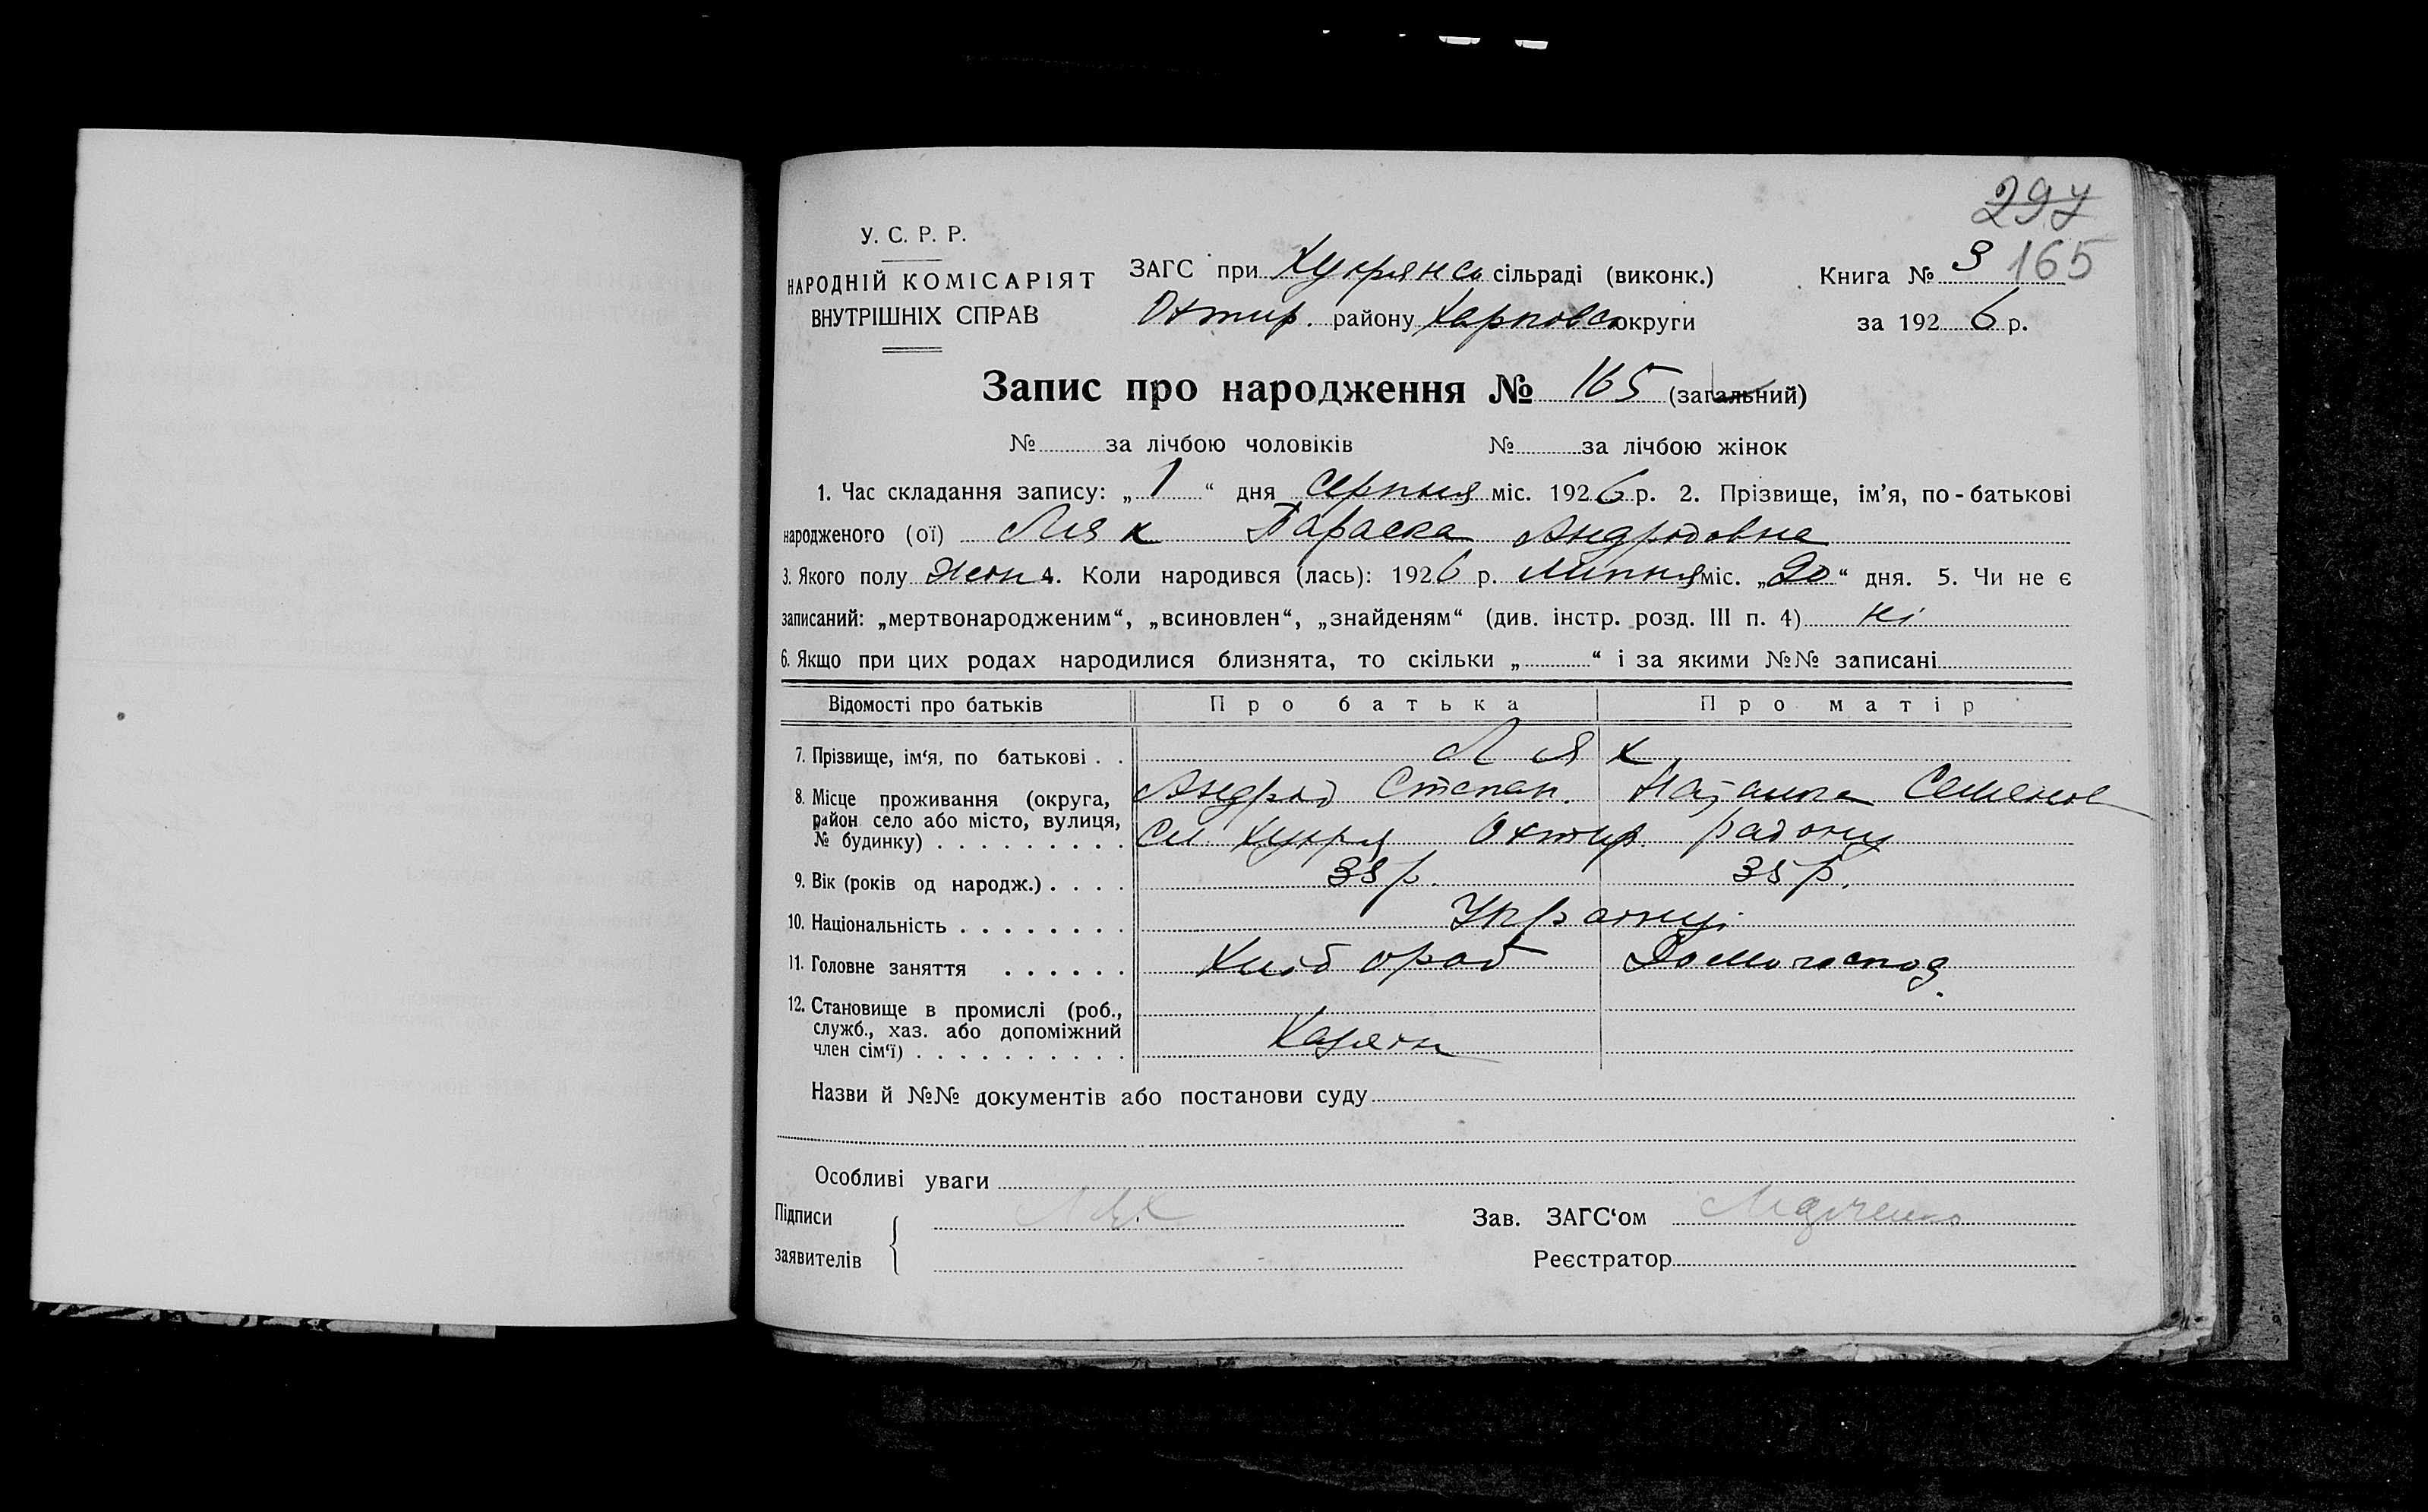 297
У. С. Р. Р.
НАРОДНІЙ КОМІСАРІЯТ
ВНУТРІШНІХ СПРАВ
ЗАГС при Хухрянск сільраді (виконк.)
Охтир. району Харковск округи
Книга № 3 165
за 1926 р.
Запис про народження № 165 (загальний)
№ за лічбою чоловіків № за лічбою жінок
1. Час складання запису: „1“ дня серпня міс. 1926 р. 2. Прізвище, ім’я, по-батькові
народженого (ої) Лях Параска Андрієвна
3. Якого полу жен 4. Коли народився (лась): 1926 р. липня міс. „20“ дня. 5. Чи не є
записаний: „мертвонародженим“, „всиновлен“, „знайденям“ (див. інстр. розд. III п. 4) ні
6. Якщо при цих родах народилися близнята, то скільки „ “ і за якими №№ записані
Відомості про батьків Про батька Про матір
7. Прізвище, ім‘я, по батькові . . Лях
8. Місце проживання (округа, район село або місто, вулиця, № будинку) . . . . . . . . .
Андрій Степан. Наталка Семенов
Сл. Хухря Охтир. району
9. Вік (років од народж.) . . . . 38 р. 35 р.
10. Національність . . . . . . . . Українці
11. Головне заняття . . . . . . Хлібороб Домогоспод.
12. Становище в промислі (роб.,
служб., хаз. або допоміжний
член сім‘ї) . . . . . . . . . . Хазяїн
Назви й №№ документів або постанови суду
Особливі уваги
Підписи
заявителів
Лях
Зав. ЗАГС‘ом
Реєстратор